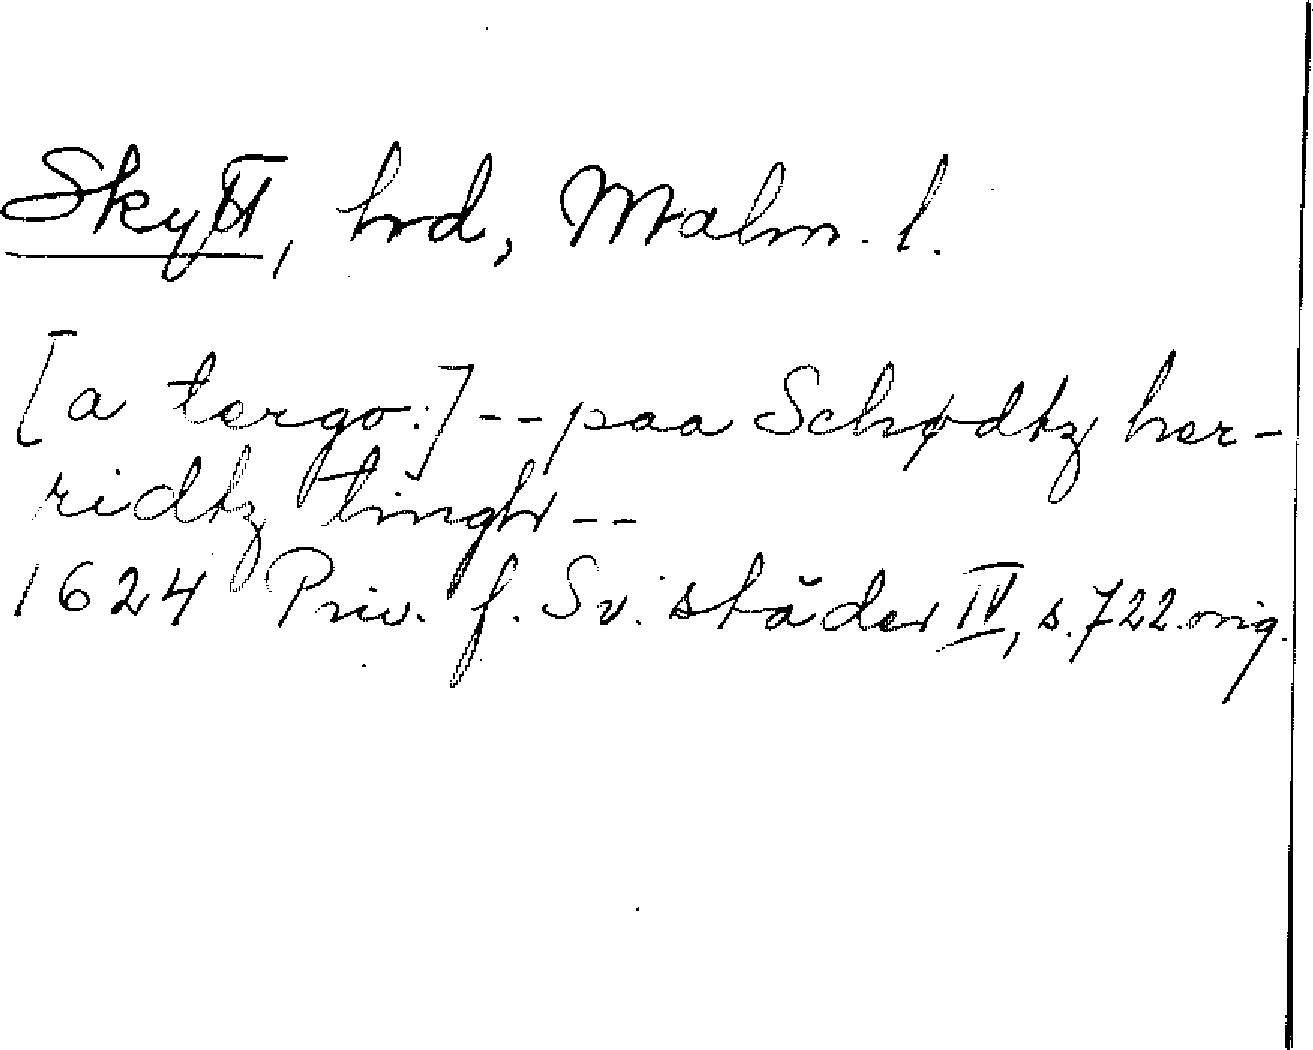 Skytt, hrd, Malm. l.
[a tergo:] -- paa Schødtz her-
ridtz tingh --
1624 Priv. f. Sv. städer IV, s. 722. orig.